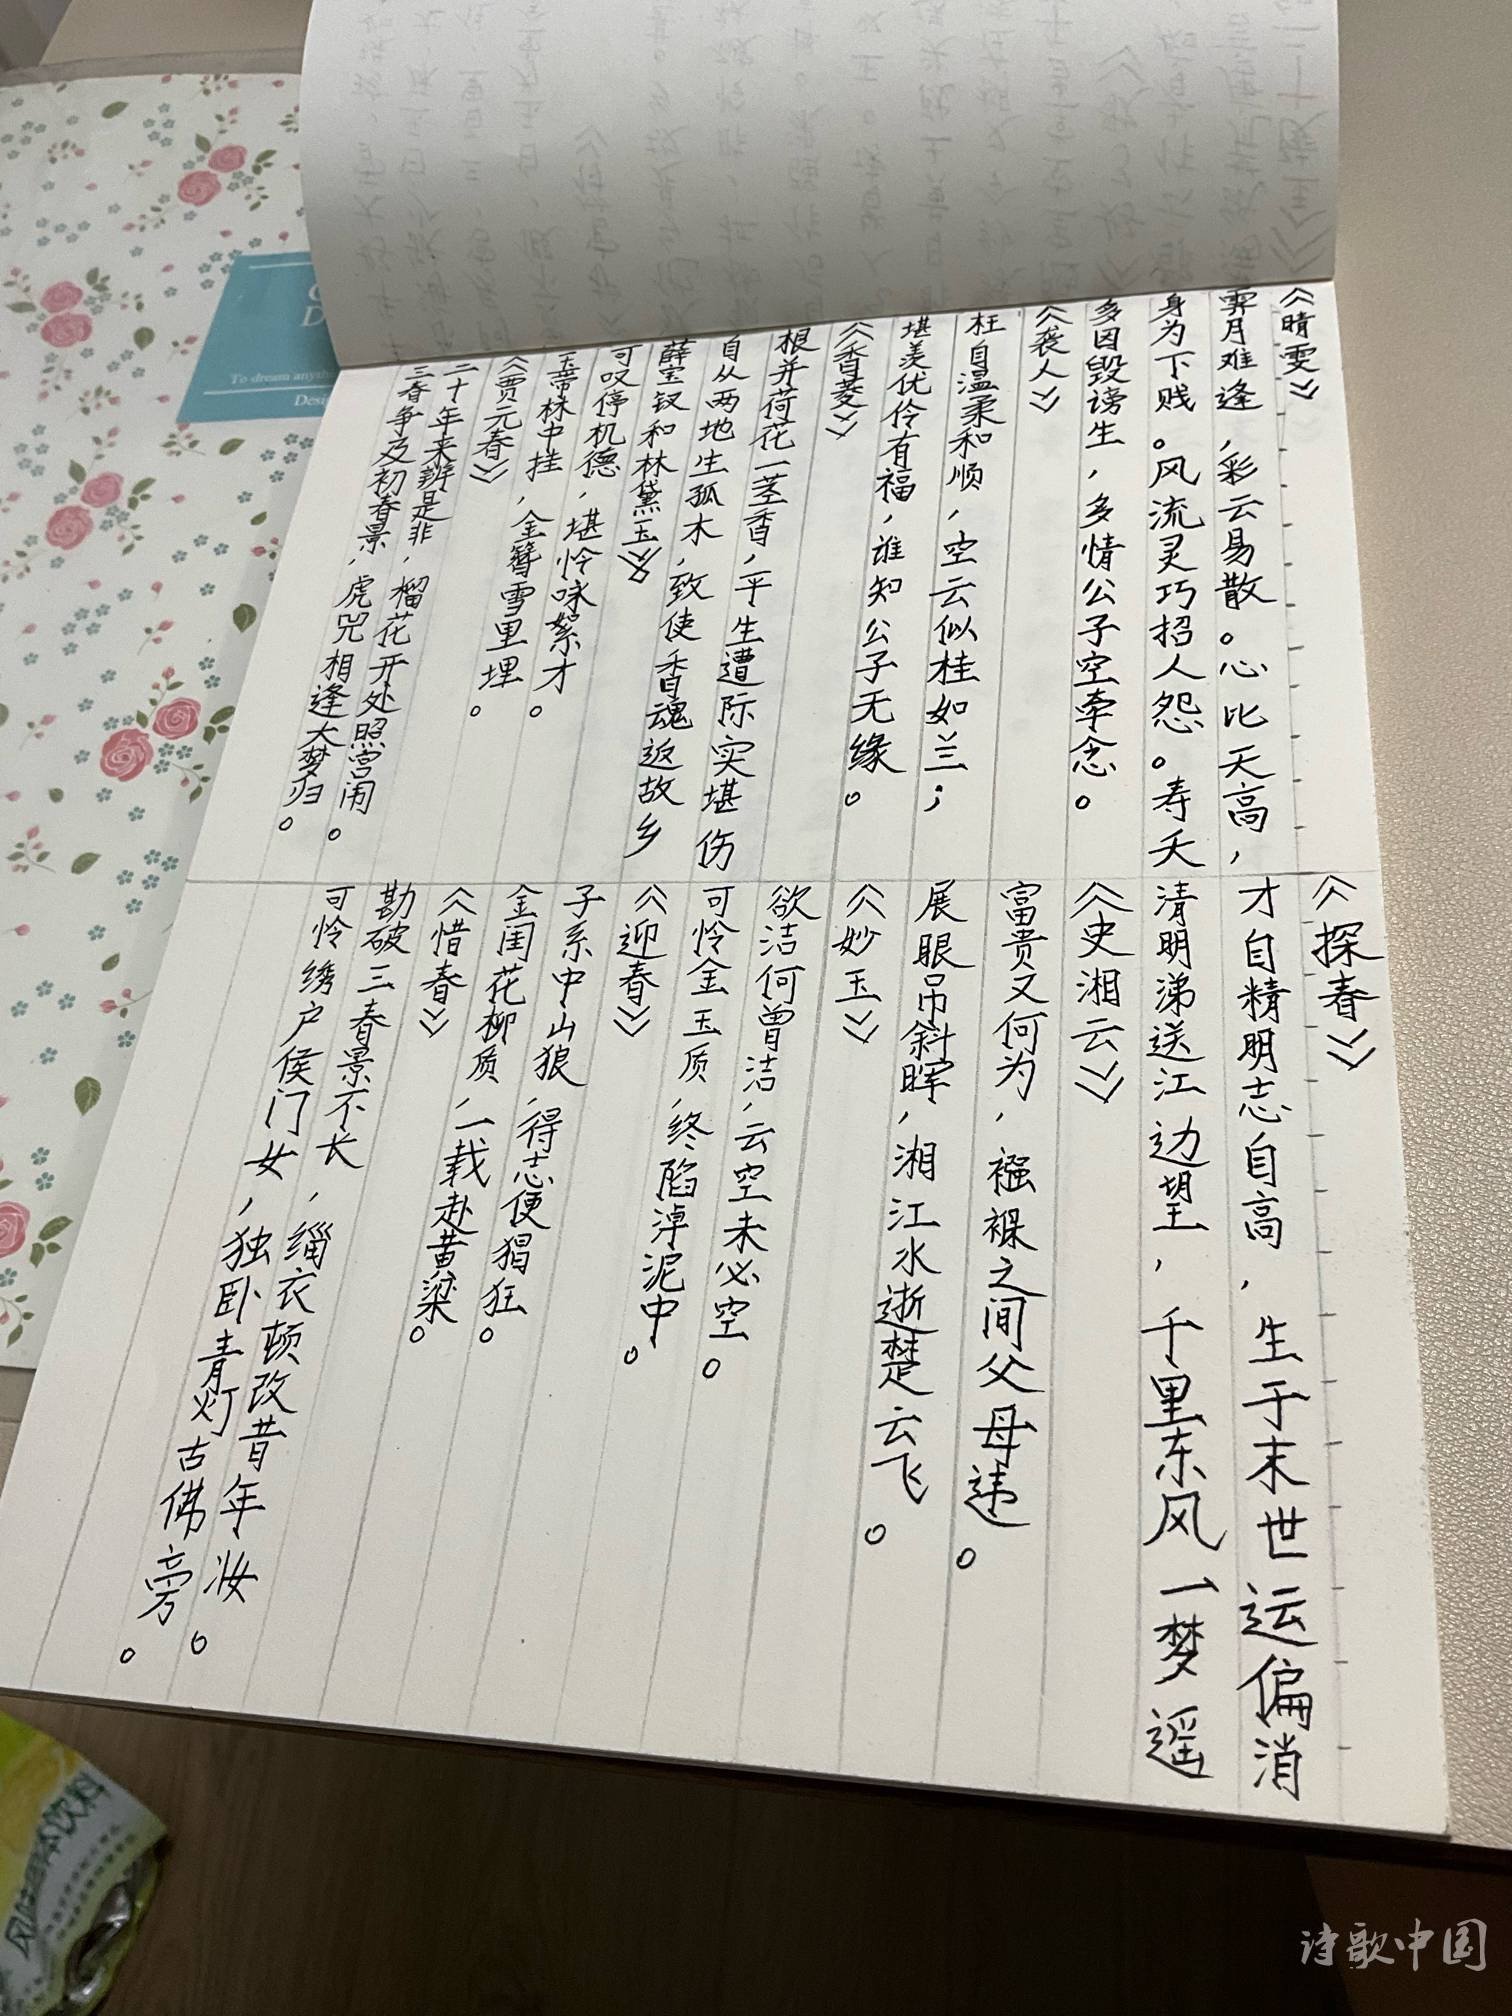 《晴雯》
霁月难逢，彩云易散。心比天高，
身为下贱。风流灵巧招人怨。寿夭
多因毁谤生，多情公子空牵念。
《袭人》
枉自温柔和顺，空云似桂如兰；
堪羡优伶有福，谁知公子无缘。
《香菱》
根并荷花一茎香，平生遭际实堪伤
自从两地生孤木，致使香魂返故乡
薛宝钗和林黛玉》
可叹停机德，堪怜咏絮才。
玉带林中挂，金簪雪里埋。
《贾元春》
二十年来辨是非，榴花开处照宫闱。
三春争及初春景，虎兕相逢大梦归。
《探春》
才自精明志自高，生于末世运偏消
清明涕送江边望，千里东风一梦遥
《史湘云》
富贵又何为，襁褓之间父母违。
展眼吊斜晖，湘江水逝楚云飞。
《妙玉》
欲洁何曾洁，云空未必空。
可怜金玉质，终陷淖泥中。
《迎春》
子系中山狼，得志便猖狂。
金闺花柳质，一载赴黄粱。
《惜春》
勘破三春景不长，缁衣顿改昔年妆。
可怜绣户侯门女，独卧青灯古佛旁。
To dream anyth
Desig
诗歌中国